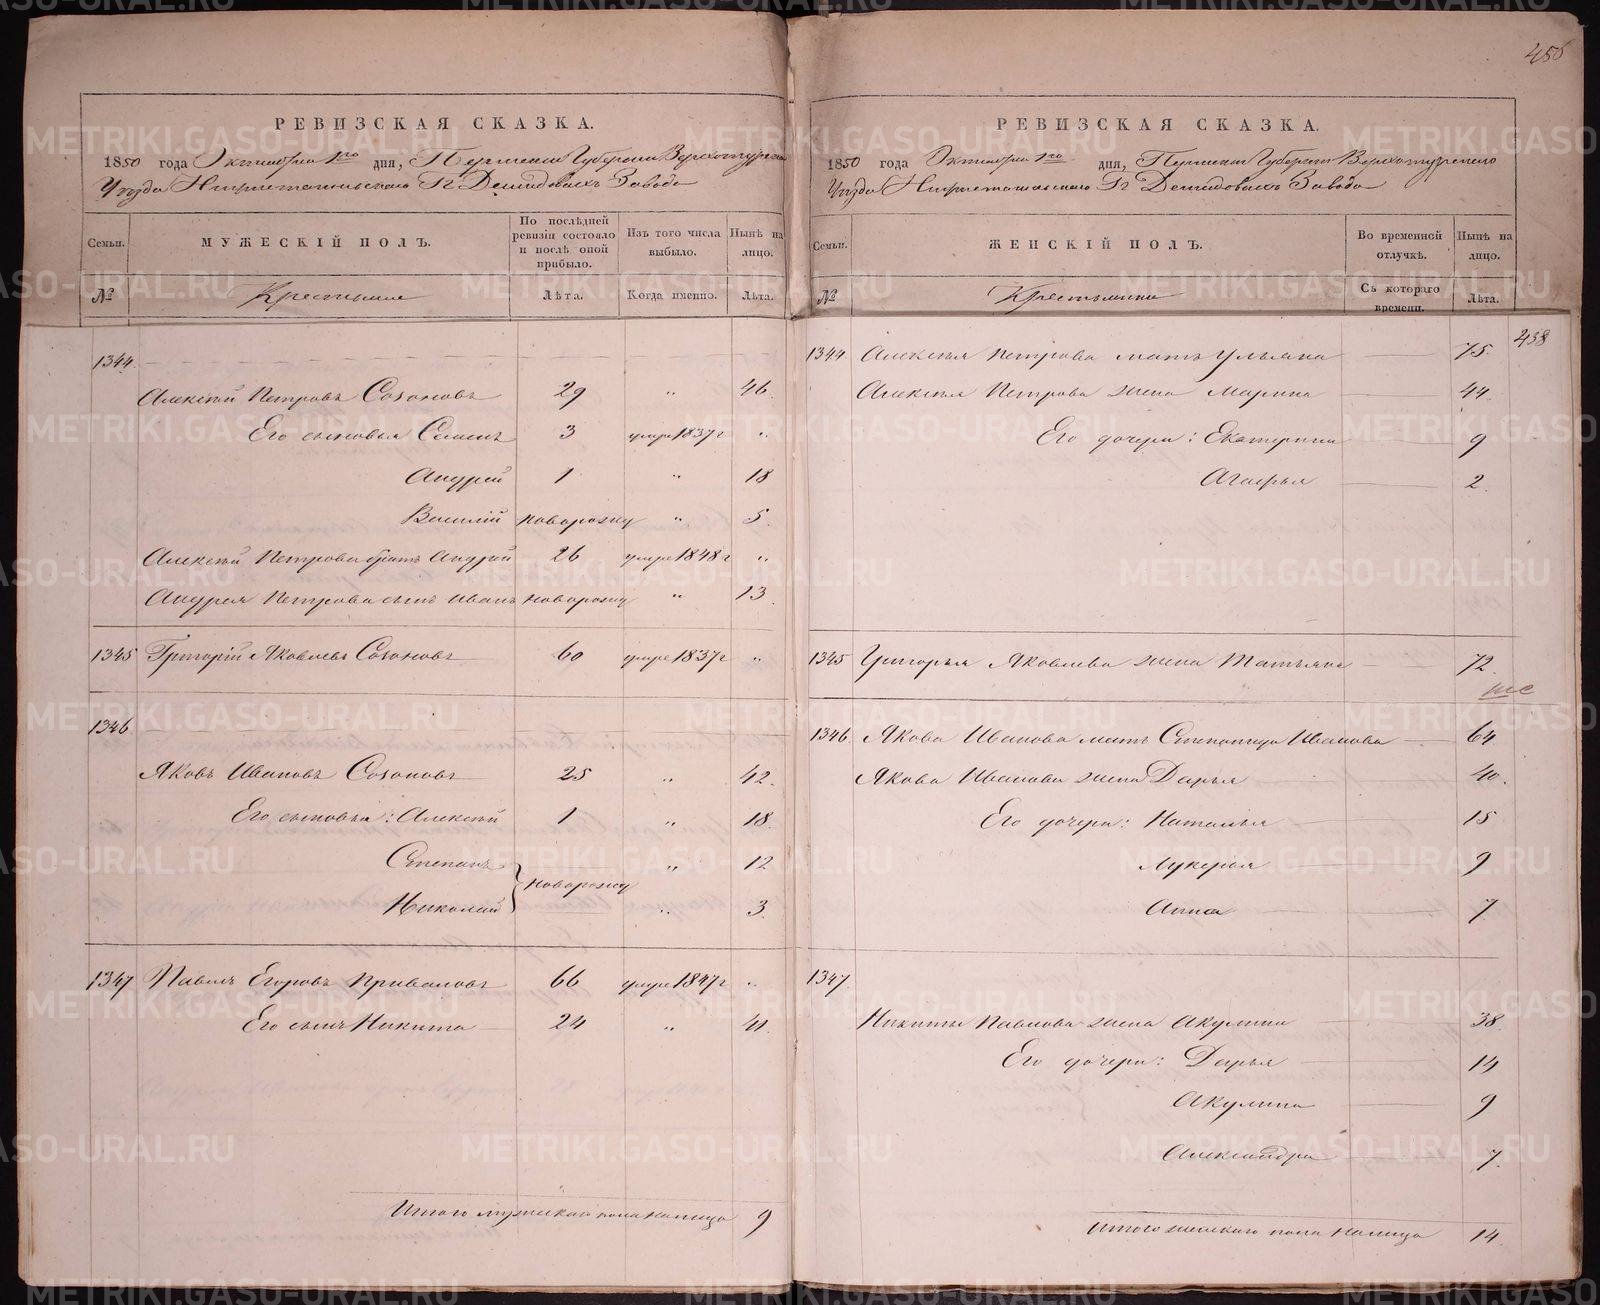 456
РЕВИЗСКАЯ СКАЗКА.
1850 года Октября 1го дня, Пермской Губернии Верхотурскаго
Уезда Нижнетагильскаго Гг Демидовыхъ Завода
Семьи. МУЖЕСКІЙ ПОЛЪ. По послѣдней ревизіи состояло и послѣ оной прибыло. Изъ того числа выбыло. Нынѣ на лицо.
№ Крестьяне Лѣта. Когда именно. Лѣта.
1344.
Алексѣй Петровъ Созоновъ 29 " 46
Его сыновья Семенъ 3 умре 1837 г "
Андрей 1 " 18
Василій новорожд " 5.
Алексѣя Петрова братъ Андрей 26 умре 1848 г "
Андрея Петрова сынъ Иванъ новорожд " 13
1345 Григорій Яковлевъ Созоновъ 60 умре 1837 г "
1346
Яковъ Ивановъ Созоновъ 25 " 42.
Его сыновья: Алексѣй 1 " 18.
Степанъ " 12
новорожд
Николай " 3.
1347 Павелъ Егоровъ Приваловъ 66 умре 1847 г "
Его сынъ Никита 24 " 41.
Итого мужеска пола налицо 9
РЕВИЗСКАЯ СКАЗКА.
1850 года Октября 1го дня, Пермской Губерніи Верхотурскаго
Уезда Нижнетагильскаго Гг Демидовыхъ Завода
Семьи. ЖЕНСКІЙ ПОЛЪ. Во временной отлучкѣ. Нынѣ на лицо.
№ Крестьянки Съ котораго времени. Лѣта.
438
1344 Алексѣя Петрова мать Ульяна 75.
Алексѣя Петрова жена Марина 44.
Его дочери: Екатерина 9
Агафья 2.
1345 Григорья Яковлева жена Татьяна 72.
1346. Якова Иванова мать Степанида Иванова 64
Якова Иванова жена Дарья 40.
Его дочери: Наталья 15
Лукерья 9
Анна 7
1347.
Никиты Павлова жена Акулина 38.
Его дочери: Дарья 14
Акулина 9
Александра 7.
Итого женскаго пола налицо 14
METRIKI.GASO-URAL.RU